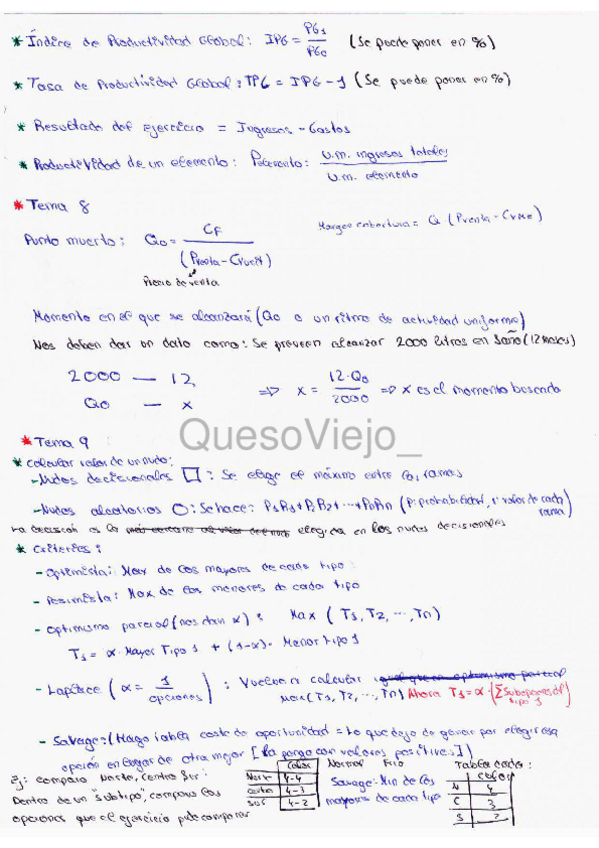 * Índice de Productividad Global: IPG = PG1 / PG0 (Se puede poner en %)
* Tasa de Productividad Global: TPG = IPG - 1 (Se puede poner en %)
* Resultado del ejercicio = Ingresos - Gastos
* Productividad de un elemento: Pelemento: u.m. ingresos totales / u.m. elemento
* Tema 8
Margen cobertura = Q (Pventa - Cvme)
Punto muerto: Q0 = CF / (Pventa - Cvunit)
Precio de venta
Momento en el que se alcanzará (Q0 a un ritmo de actividad uniforme)
Nos deben dar un dato como: Se preveen alcanzar 2000 litros en 1 año (12 meses)
2000 — 12
Q0 — x
=> x = 12·Q0 / 2000 => x es el momento buscado
QuesoViejo_
* Tema 9
* Calcular valor de un nudo:
- Nudos decisionales □: Se elige el máximo entre las ramas
- Nudos aleatorios O: Se hace: P1R1+P2R2+...+PnRn (P: probabilidad, r: valor de cada rama)
La decisión es la elegida en los nudos decisionales
* Criterios:
- Optimista: Max de los mayores de cada tipo
- Pesimista: Max de los menores de cada tipo
- Optimismo parcial (nos dan α): Max (T1, T2, ..., Tn)
T1 = α·Mayor Tipo 1 + (1-α)·Menor Tipo 1
- Laplace (α = 1 / opciones): Vuelve a calcular
max (T1, T2, ..., Tn) Ahora T1 = α·(Σ Subopciones del tipo 1)
- Savage: (Hago tabla coste de oportunidad = Lo que dejo de ganar por elegir esa
opción en lugar de otra mejor [La pongo con valores positivos])
Ej: comparo Norte, Centro Sur:
Dentro de un "subtipo", comparo las
opciones que el ejercicio pide comparar
Calor Normal Frío
Norte 4-4
Centro 4-3
Sur 4-2
Savage: Min de los
mayores de cada tipo
Tabla cada:
calor
N 4
C 3
S 2